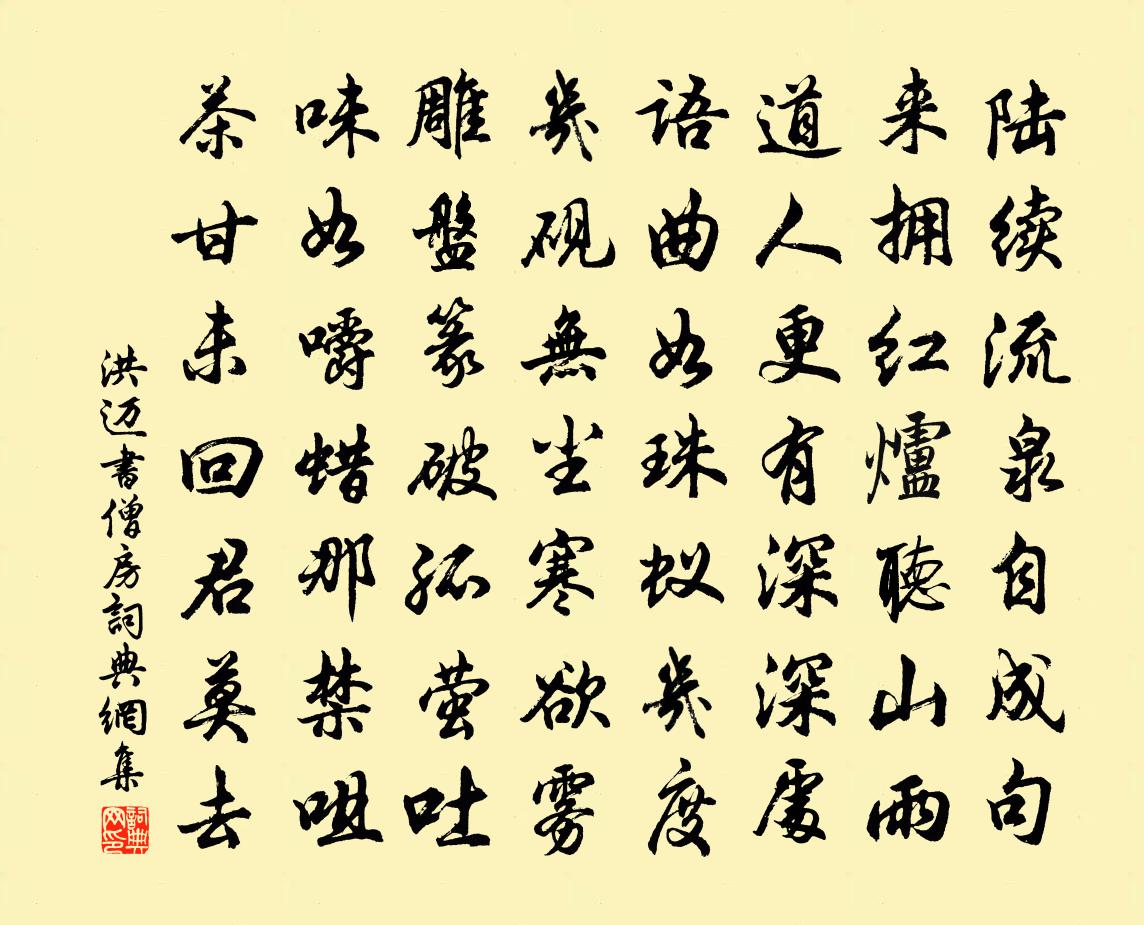 陆续流泉自成句
来拥红爐聽山雨
道人更有深深處
语曲如珠蚁幾度
幾砚無尘寒欲雾
雕盤篆破孤萤吐
味如嚼蜡那禁咀
茶甘未回君莫去
洪迈書僧房詞典網集
詞典网印